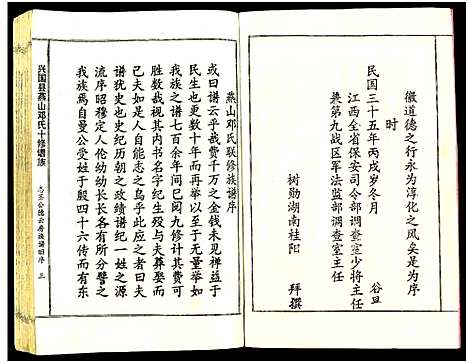 徽道德之行永为淳化之风矣是为序
时
民国三十五年丙戌岁冬月 谷旦
江西全省保安司令部调查室少将主任
兼第九战区军法监部调查室主任
树勋湖南桂阳 拜撰
燕山邓氏联修族谱序
或曰谱云谱云数十年而再修万千之金钱未见裨益于
民生也更费数年而再举计其一族之谱修计其费可
我族之谱七百余年间已阅九修计其费可
胜数哉视其内书名字纪生殁与夫葬娶而
已夫如是人自能志之乌乎此应之者曰
史以纪历朝之政绩谱纪一姓之源
流序昭穆定人伦幼幼长长各有所分譬之
我族焉自曼公受姓于殷四十六传而有东
兴国县燕山邓氏十修谱族
志主公德云房族谱旧序 三